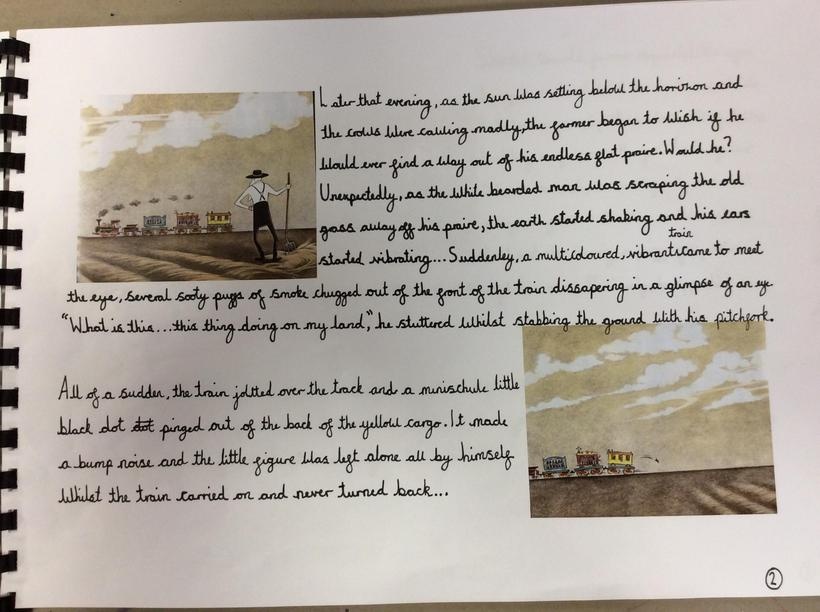 Later that evening, as the sun was setting below the horizon and
the crows were cawling madly, the farmer began to wish if he
would ever find a way out of his endless flat praire. Would he?
Unexpectedly, as the white bearded man was scraping the old
gass away off his praire, the earth started shaking and his ears
train
started vibrating... Suddenley, a multicoloured, vibrant came to meet
the eye, several sooty puffs of smoke chugged out of the front of the train dissapering in a glimpse of an eye.
"What is this...this thing doing on my land," he stuttered whilst stabbing the ground with his pitchfork.
All of a sudden, the train joltted over the track and a minischule little
black dot dot pinged out of the back of the yellow cargo. It made
a bump noise and the little figure was left alone all by himself
whilst the train carried on and never turned back...
2